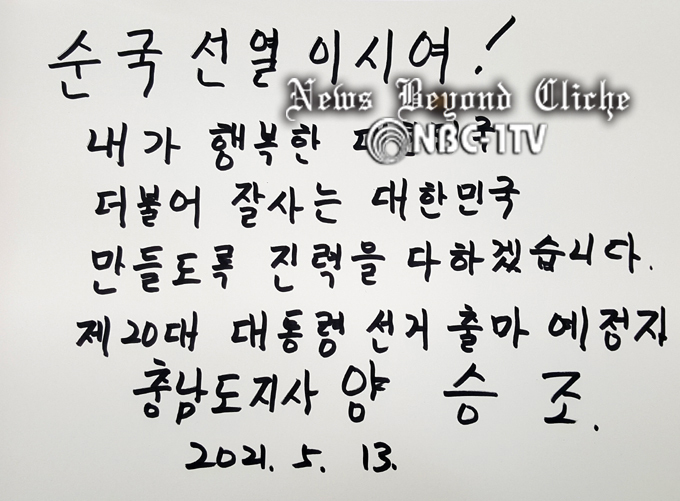 순국 선열 이시여!
News Beyond Cliche
내가 행복한
NBC-1TV
더불어 잘사는 대한민국
만들도록 진력을 다하겠습니다.
제20대 대통령 선거 출마 예정자
충남도지사 양 승 조.
2021. 5. 13.